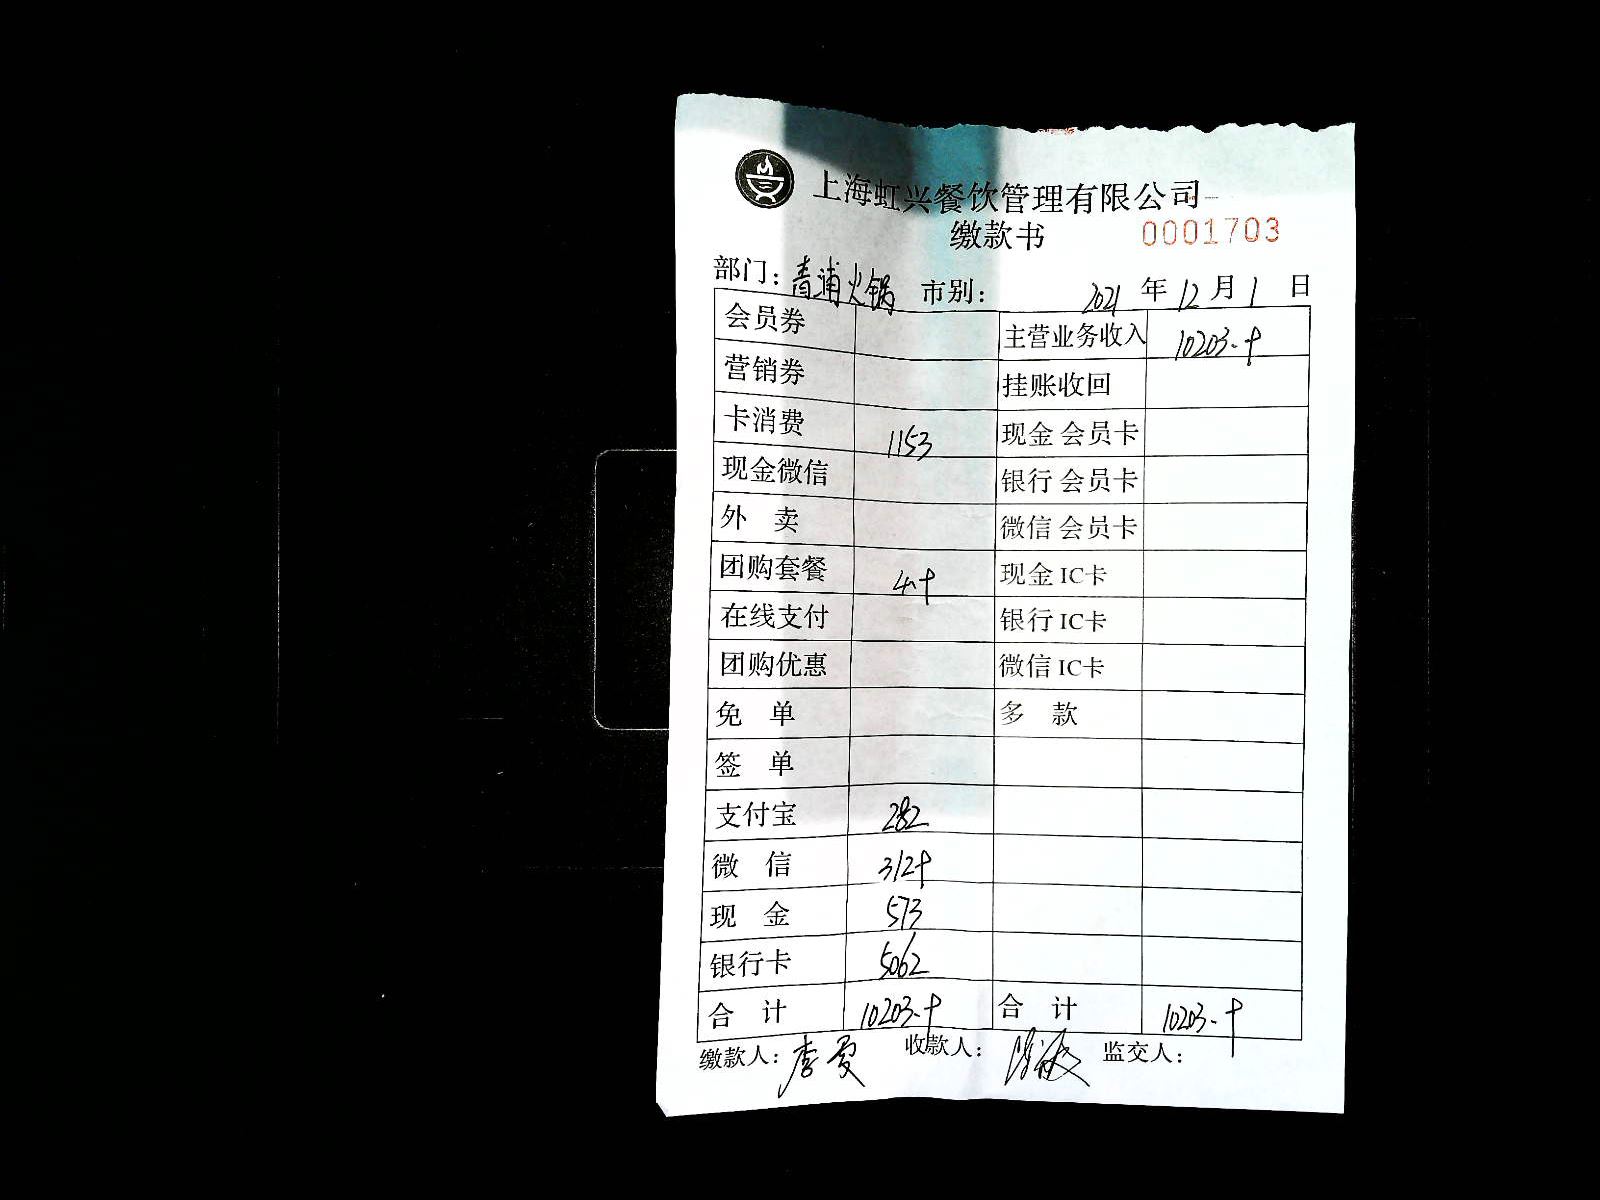 上海虹兴餐饮管理有限公司
缴款书 0001703
部门：青浦火锅 市别： 2021 年 12 月 1 日
会员券 主营业务收入 10203.9
营销券 挂账收回
卡消费 1153 现金会员卡
现金微信 银行会员卡
外卖 微信会员卡
团购套餐 4.9 现金IC卡
在线支付 银行IC卡
团购优惠 微信IC卡
免单 多款
签单
支付宝 282
微信 3129
现金 573
银行卡 5062
合计 10203.9 合计 10203.9
缴款人：李霞 收款人： 监交人：